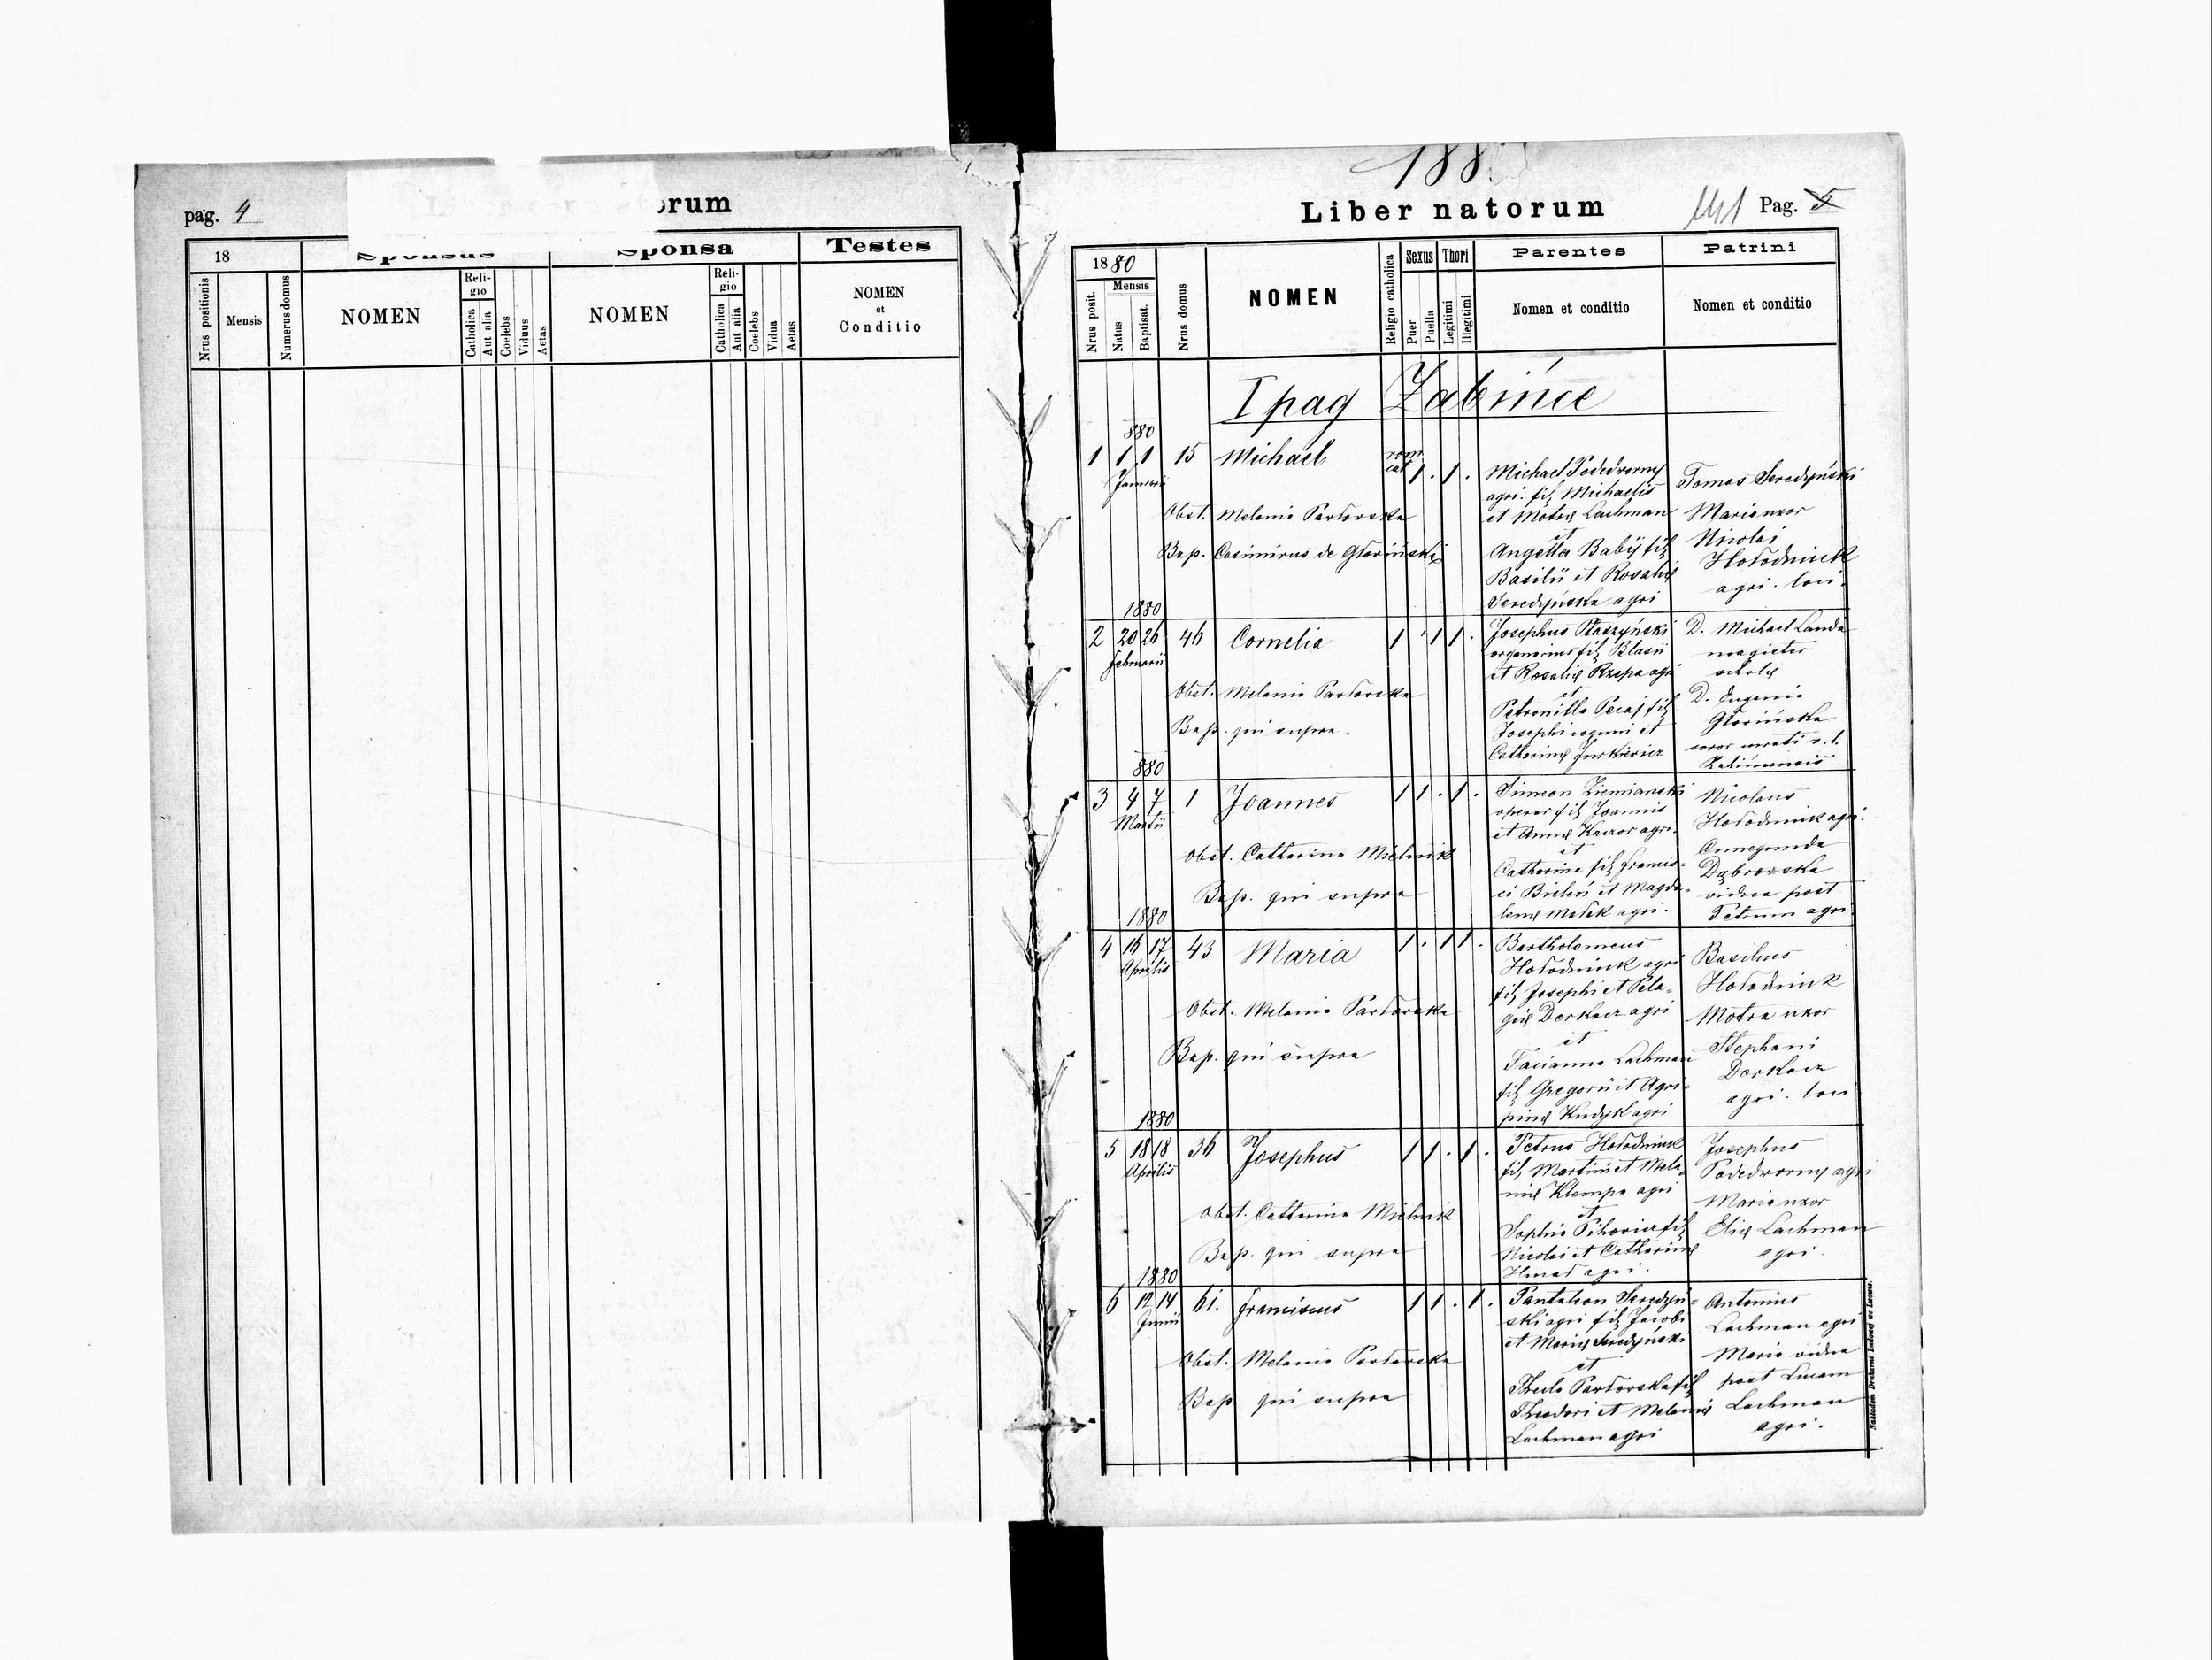 pag. 4
orum
18
Sponsus
Sponsa
Testes
Nrus positionis
Mensis
Numerus domus
NOMEN
Reli-
gio
Catholica
Aut alia
Coelebs
Viduus
Aetas
NOMEN
Reli-
gio
Catholica
Aut alia
Coelebs
Vidua
Aetas
NOMEN
et
Conditio
188
Liber natorum
141 Pag. 5
1880
Nrus posit.
Mensis
Natus
Baptisat.
Nrus domus
NOMEN
Religio catholica
Sexus
Puer
Puella
Thori
Legitimi
Illegitimi
Parentes
Nomen et conditio
Patrini
Nomen et conditio
I pag Żabińce
880
1 1 1 15 Michael rom. cat 1 . 1 .
Januarii
Obst. Melania Parłovska
Bap. Casimirus de Głoviński
Michael Podedworny
agri. fil Michaelis
et Motrę Lachman
et
Angella Babÿ fil
Basilii et Rosalię
Seredyńska agri
Tomas Seredyński
Maria uxor
Nicolai
Hołodniuk
agri. loci.
1880
2 20 26 46 Cornelia 1 . 1 1 .
Februarii
Obst. Melania Parłovska
Bap. qui supra.
Josephus Ptaszyński
organarius fil Blasii
et Rosalię Rzepa agri
et
Petronilla Pecaj fil
Josephi et
Catharinę Jurkiewicz
D. Michael Landa
magister
scholę
D. Eugenia
Głovińska
soror curati r. l.
Żabińcensis
880
3 4 7 1 Joannes 1 1 . 1 .
Martii
Obst. Catharina Mielnik
Bap. qui supra
Simeon Ziemianski
operar fil Joannis
et Annę Kaczor agri.
et
Catharina fil Francis-
ci Bieleń et Magda-
lenę Małek agri.
Nicolaus
Hołodniuk agri.
Cunegunda
Dąbrovska
vidua post
Petrum agri.
1880
4 16 17 43 Maria 1 . 1 1 .
Aprilis
Obst. Melania Parłovska
Bap. qui supra
Bartholomeus
Hołodniuk agri
fil Josephi et Pela-
gię Derkacz agri
et
Tacianna Lachman
fil Gregorii et Agri-
pinę Kudyk agri
Basilius
Hołodniuk
Motra uxor
Stephani
Derkacz
agri. loci
1880
5 18 18 36 Josephus 1 1 . 1 .
Aprilis
Obst. Catharina Mielnik
Bap. qui supra
Petrus Hołodniuk
fil Martini et Mela-
nię Klempa agri
et
Sophia Pihovicz fil
Nicolai et Catharinę
Hnat agri.
Josephus
Podedworny agri
Maria uxor
Elię Lachman
agri.
1880
6 12 14 61. Franciscus 1 1 . 1 .
Junii
Obst. Melania Parłovska
Bap. qui supra
Pantaleon Seredyń-
ski agri fil Jacobi
et Marię Seredyński
et
Thecla Parłovska fil
Theodori et Melanię
Lachman agri
Antonius
Lachman agri
Maria vidua
post Lucam
Lachman
agri.
Nakładem Drukarni Ludowej we Lwowie.